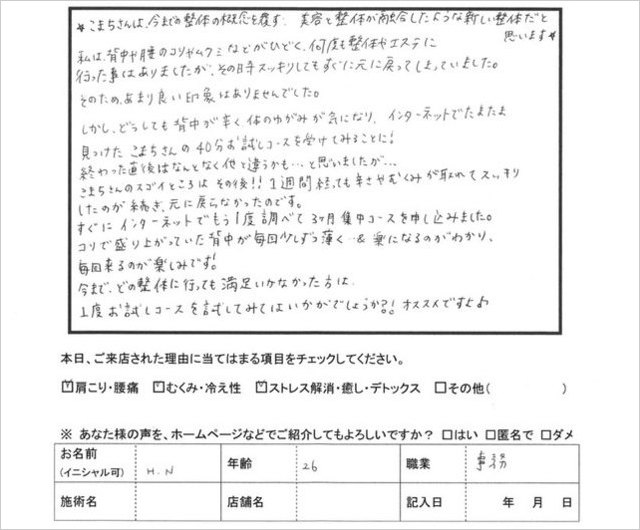 ★こまちさんは、今までの整体の概念を覆す、美容と整体が融合したような新しい整体だと
思います★
私は、背中や腰のコリやムクミなどがひどく、何度も整体やエステに
行った事はありましたが、その時スッキリしてもすぐに元に戻ってしまっていました。
そのため、あまり良い印象はありませんでした。
しかし、どうしても背中が辛く体のゆがみが気になり、インターネットでたまたま
見つけたこまちさんの40分お試しコースを受けてみることに!
終わった直後はなんとなく他と違うかも…と思いましたが…
こまちさんのスゴイところはその後!!1週間経っても辛さやむくみが取れてスッキリ
したのが続き、元に戻らなかったのです。
すぐにインターネットでもう1度調べて3ヶ月集中コースを申し込みました。
コリで盛り上がっていた背中が毎回少しずつ薄く…&楽になるのがわかり、
毎回来るのが楽しみです!
今まで、どの整体に行っても満足いかなかった方は
1度お試しコースを試してみてはいかがでしょうか?!オススメですよ♪
本日、ご来店された理由に当てはまる項目をチェックしてください。
☑肩こり・腰痛 ☑むくみ・冷え性 ☑ストレス解消・癒し・デトックス □その他( )
※ あなた様の声を、ホームページなどでご紹介してもよろしいですか? □はい □匿名で □ダメ
お名前 (イニシャル可) H.N 年齢 26 職業 事務
施術名 店舗名 記入日 年 月 日